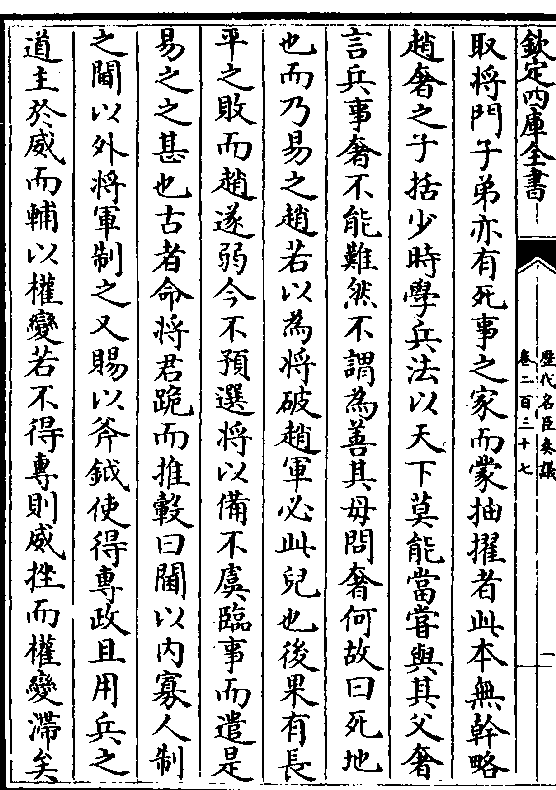 欽定四庫全書
歷代名臣奏議
卷二百三十七
一
取將門子弟亦有死事之家而蒙抽擢者此本無幹略
趙奢之子括少時學兵法以天下莫能當嘗與其父奢
言兵事奢不能難然不謂為善其母問奢何故曰死地
也而乃易之趙若以為將破趙軍必此兒也後果有長
平之敗而趙遂弱今不預選將以備不虞臨事而遣是
易之之甚也古者命將君跪而推轂曰閫以内寡人制
之閫以外將軍制之又賜以斧鉞使得專政且用兵之
道主於威而輔以權變若不得專則威挫而權變滯矣